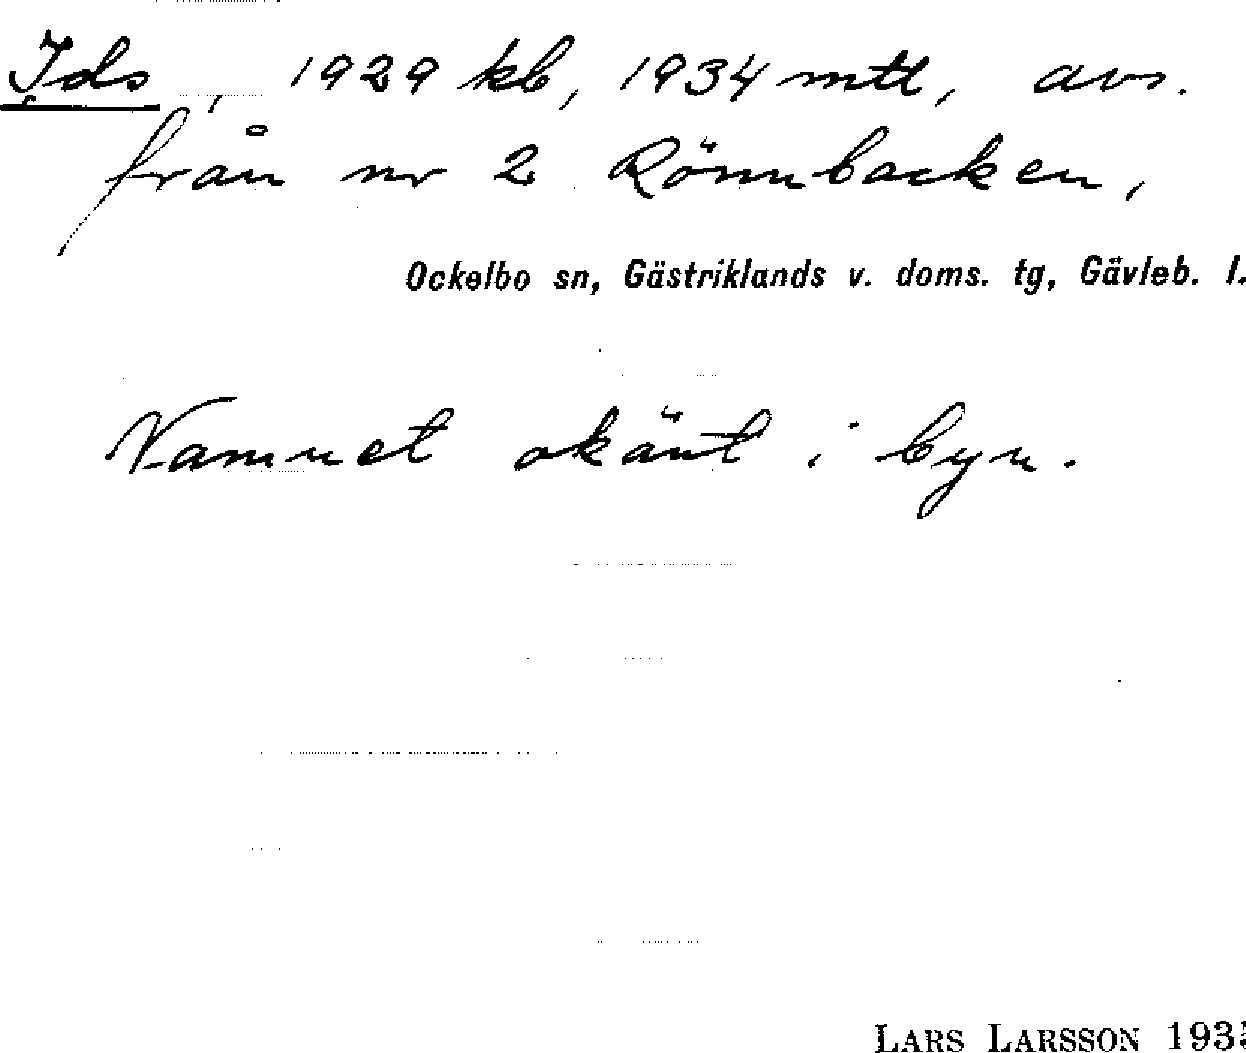 Ids, 1929 kb, 1934 mtl, avs.
från nr 2 Rönnbacken,
Ockelbo sn, Gästriklands v. doms. tg, Gävleb. l.
Namnet okänt i byn.
LARS LARSSON 193